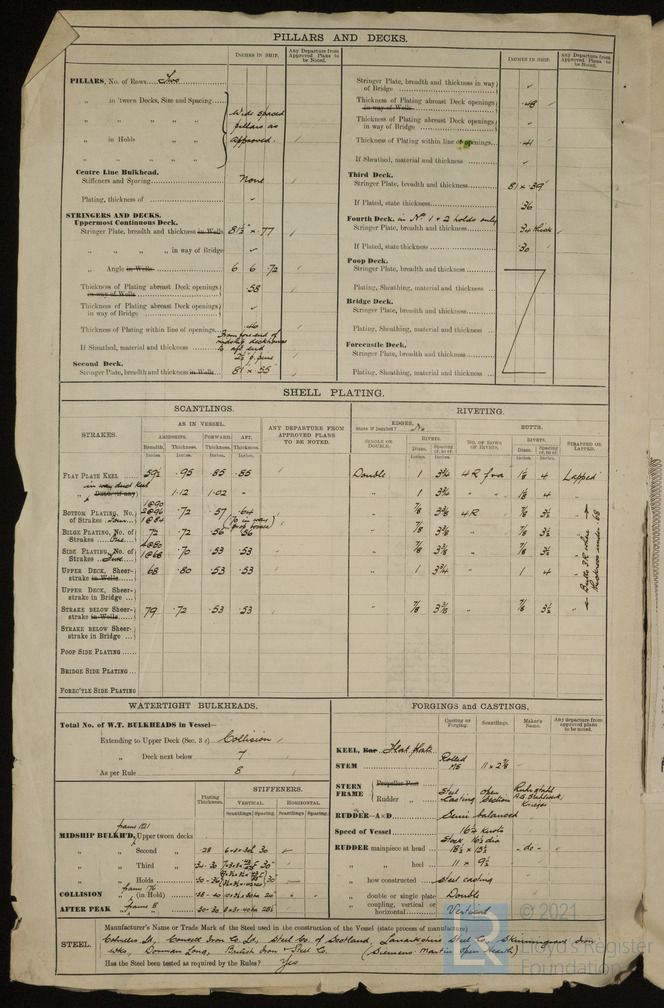 PILLARS AND DECKS.
INCHES IN SHIP.
Any Departure from Approved Plans to be Noted.
PILLARS, No. of Rows Two
„ in 'tween Decks, Size and Spacing
„ „ „ „
„ in Holds „ „
„ „ „ „
Wide spaced
pillars as
approved.
Centre Line Bulkhead.
Stiffeners and Spacing None
Plating, thickness of
STRINGERS AND DECKS.
Uppermost Continuous Deck.
Stringer Plate, breadth and thickness in Wells 81½ × .77
„ „ „ „ in way of Bridge
„ Angle in Wells 6 6 .72
Thickness of Plating abreast Deck openings in way of Wells .58
Thickness of Plating abreast Deck openings in way of Bridge
Thickness of Plating within line of openings .40
If Sheathed, material and thickness From fore end of midship deckhouse to aft end 2½" p. pine
Second Deck.
Stringer Plate, breadth and thickness in Wells 81 × .55
INCHES IN SHIP.
Any Departure from Approved Plans to be Noted.
Stringer Plate, breadth and thickness in way of Bridge
Thickness of Plating abreast Deck openings in way of Wells .48
Thickness of Plating abreast Deck openings in way of Bridge
Thickness of Plating within line of openings .41
If Sheathed, material and thickness
Third Deck.
Stringer Plate, breadth and thickness 81 × .39
If Plated, state thickness .36
Fourth Deck. in No. 1 + 2 holds only
Stringer Plate, breadth and thickness .34 thick
If Plated, state thickness .30
Poop Deck.
Stringer Plate, breadth and thickness
Plating, Sheathing, material and thickness
Bridge Deck.
Stringer Plate, breadth and thickness
Plating, Sheathing, material and thickness
Forecastle Deck.
Stringer Plate, breadth and thickness
Plating, Sheathing, material and thickness
SHELL PLATING.
SCANTLINGS.
RIVETING.
STRAKES.
AS IN VESSEL.
AMIDSHIPS. FORWARD. AFT.
Breadth. Thickness. Thickness. Thickness.
Inches. Inches. Inches. Inches.
ANY DEPARTURE FROM APPROVED PLANS TO BE NOTED.
EDGES.
State if Joggled? No
BUTTS.
SINGLE OR DOUBLE.
RIVETS.
Diam. Spacing cr. to cr.
No. OF ROWS OF RIVETS.
RIVETS.
Diam. Spacing cr. to cr.
STRAPPED OR LAPPED.
FLAT PLATE KEEL 59½ .95 .85 .85 Double 1 3¾ 4R 1⅛ 4 Lapped
in way duct keel
„ 1.12 1.02 - „ 1 3¾ „ 1⅛ 4
BOTTOM PLATING, No. of Strakes .72 .57 .64 „ ⅞ 3⅜ 4R ⅞ 3½
BILGE PLATING, No. of Strakes One 72 .72 .56 .56 „ ⅞ 3⅜ „ ⅞ 3½
SIDE PLATING, No. of Strakes .70 .53 .53 „ ⅞ 3⅜ „ ⅞ 3½
UPPER DECK, Sheerstrake in Wells 68 .80 .53 .53 „ 1 3¾ „ 1 4
UPPER DECK, Sheerstrake in Bridge
STRAKE BELOW Sheerstrake in Wells 79 .72 .53 .53 „ ⅞ 3⅜ „ ⅞ 3½
STRAKE BELOW Sheerstrake in Bridge
POOP SIDE PLATING
BRIDGE SIDE PLATING
FOREC'TLE SIDE PLATING
Butts 3R when thickness under .68
WATERTIGHT BULKHEADS.
Total No. of W.T. BULKHEADS in Vessel—
Extending to Upper Deck (Sec. 3 c) Collision
„ Deck next below 7
As per Rule 8
Plating Thickness.
STIFFENERS.
VERTICAL. HORIZONTAL.
Scantlings. Spacing. Scantlings. Spacing.
frame 121
MIDSHIP BULKH'D, Upper tween decks
„ „ Second „ .28
„ „ Third „
„ „ Holds
COLLISION „ (in Hold) frame 176
AFTER PEAK „ frame 8
FORGINGS and CASTINGS,
Casting or Forging. Scantlings. Maker's Name. Any departure from approved plans to be noted.
KEEL, Bar Flat plate
STEM Rolled MS 11 × 2⅞
STERN FRAME
Propeller Post
Rudder „
Steel Casting open section
RUDDER—A×D Semi balanced
Speed of Vessel 16½ knots
RUDDER mainpiece at head -do-
„ „ heel 11 × 9½
„ how constructed steel casting
„ double or single plate Double
„ coupling, vertical or horizontal Vertical
STEEL.
Manufacturer's Name or Trade Mark of the Steel used in the construction of the Vessel (state process of manufacture)
Colvilles Ld, Consett Iron Co. Ld, Steel Co. of Scotland, Lanarkshire Steel Co, Skinningrove Iron
Wks, Dorman Long, British Iron + Steel Co. (Siemens-Martin open hearth)
Has the Steel been tested as required by the Rules? Yes
© 2021
Lloyd's Register
Foundation